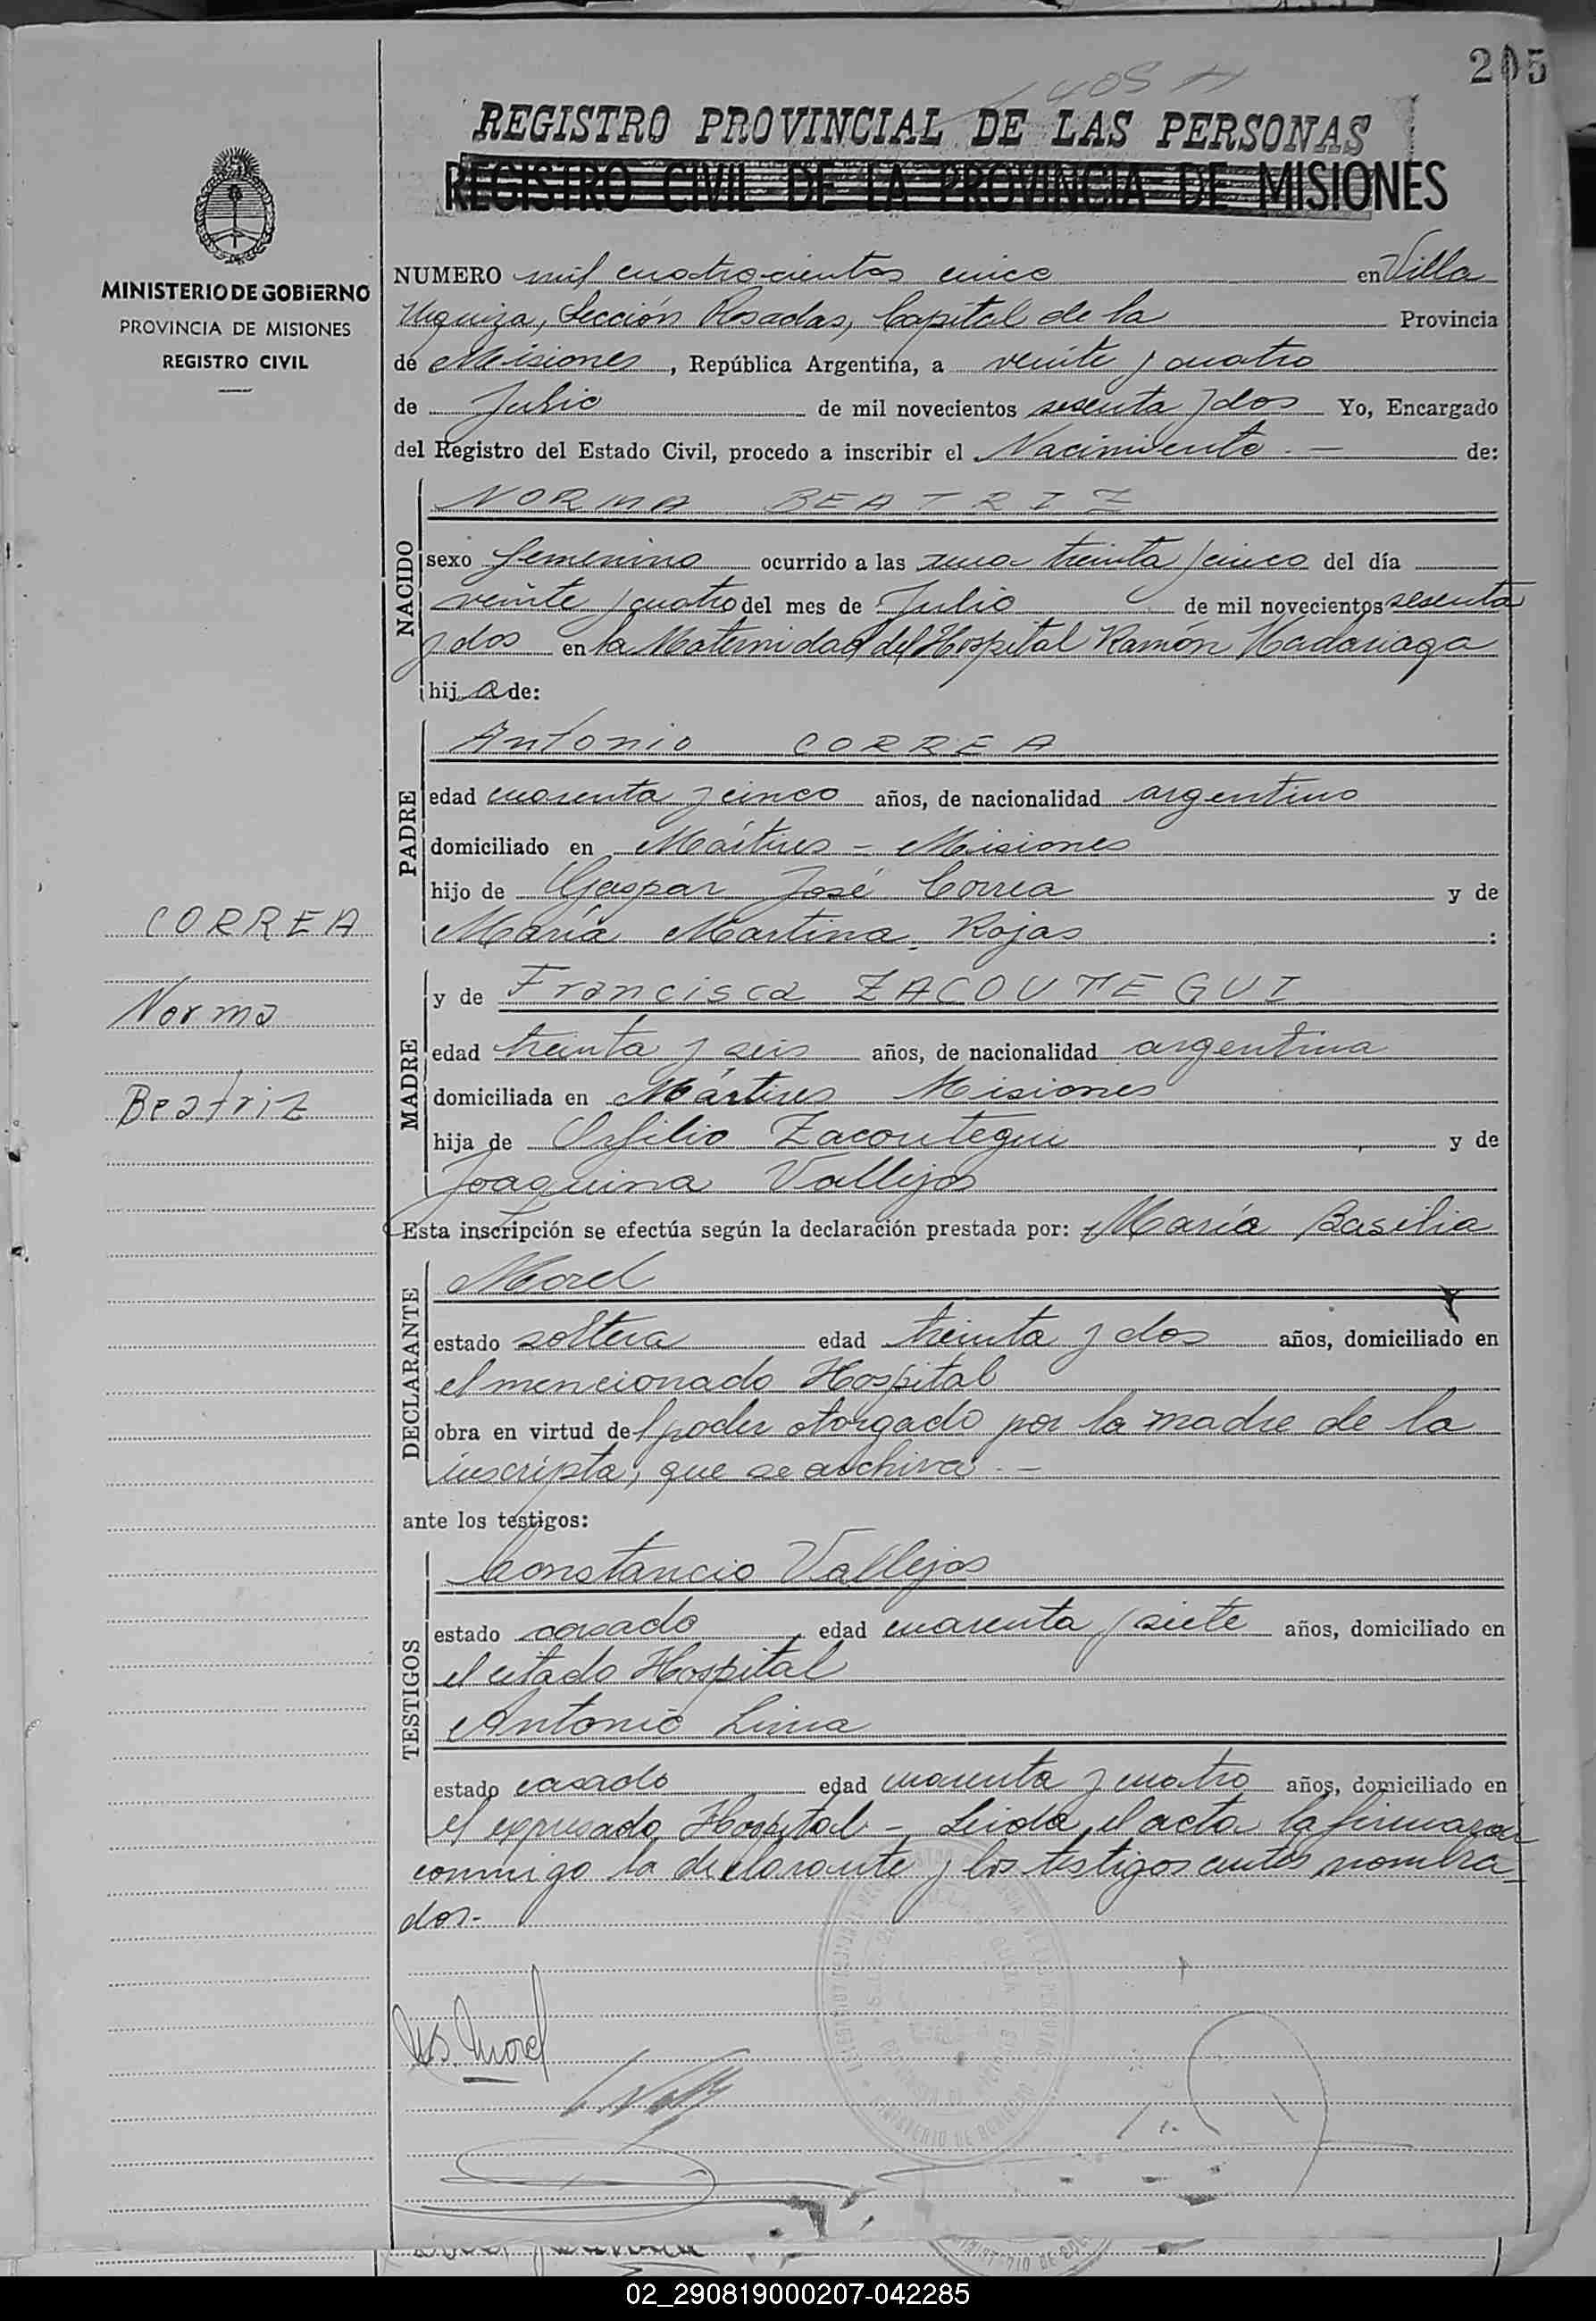 205
1405 H
REGISTRO PROVINCIAL DE LAS PERSONAS
REGISTRO CIVIL DE LA PROVINCIA DE MISIONES
MINISTERIO DE GOBIERNO
PROVINCIA DE MISIONES
REGISTRO CIVIL
NUMERO mil cuatrocientos cinco en Villa
Urquiza, Sección Posadas, Capital de la Provincia
de Misiones, República Argentina, a veinte y cuatro
de Julio de mil novecientos sesenta y dos Yo, Encargado
del Registro del Estado Civil, procedo a inscribir el Nacimiento.— de:
NACIDO
NORMA BEATRIZ
sexo femenino ocurrido a las una treinta y cinco del día
veinte y cuatro del mes de Julio de mil novecientos sesenta
y dos en la Maternidad del Hospital Ramón Madariaga
hij a de:
PADRE
Antonio CORREA
edad cuarenta y cinco años, de nacionalidad argentino
domiciliado en Mártires - Misiones
hijo de Gaspar José Correa y de
María Martina Rojas :
CORREA
Norma
Beatriz
MADRE
y de Francisca ZACOUTEGUI
edad treinta y seis años, de nacionalidad argentina
domiciliada en Mártires Misiones
hija de Orfilio Zacoutegui y de
Joaquina Vallejos
Esta inscripción se efectúa según la declaración prestada por: María Basilia
DECLARANTE
Morel
estado soltera edad treinta y dos años, domiciliado en
el mencionado Hospital
obra en virtud del poder otorgado por la madre de la
inscripta, que se archiva.—
ante los testigos:
TESTIGOS
Constancio Vallejos
estado casado edad cuarenta y siete años, domiciliado en
el citado Hospital
Antonio Lima
estado casado edad cuarenta y cuatro años, domiciliado en
el expresado Hospital - Leida el acta la firmaron
conmigo la declarante y los testigos antes nombra-
dos.-
M.B. Morel
MINISTERIO DE GOBIERNO
02_290819000207-042285